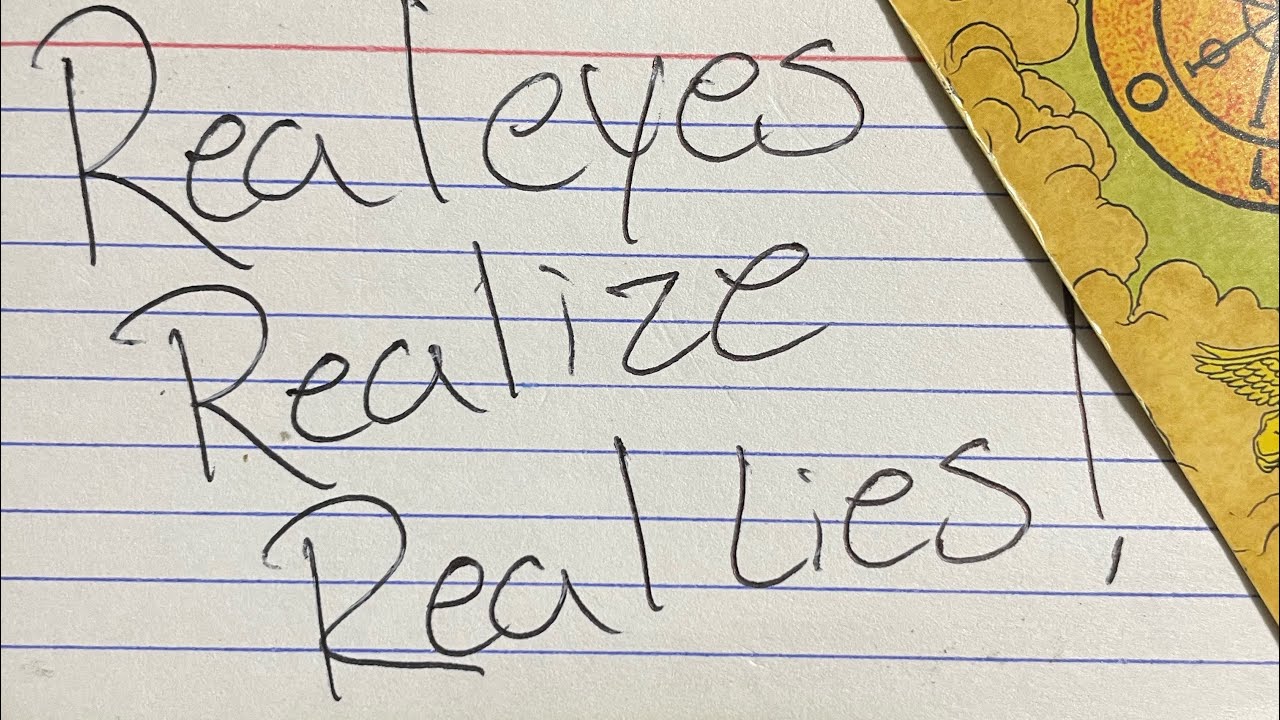 Real eyes
Realize
Real Lies!